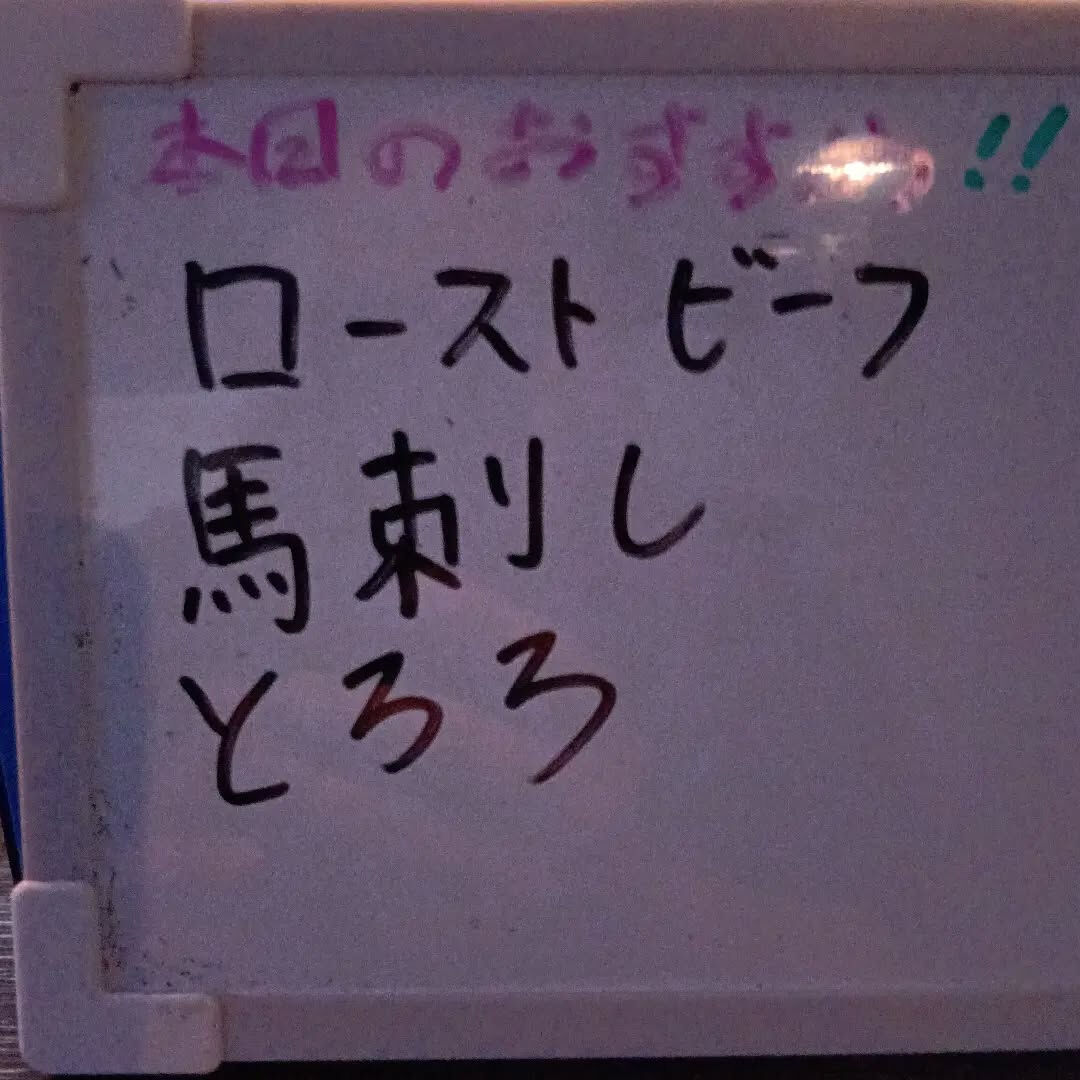 本日のおすすめ!!
ローストビーフ
馬刺し
とろろ